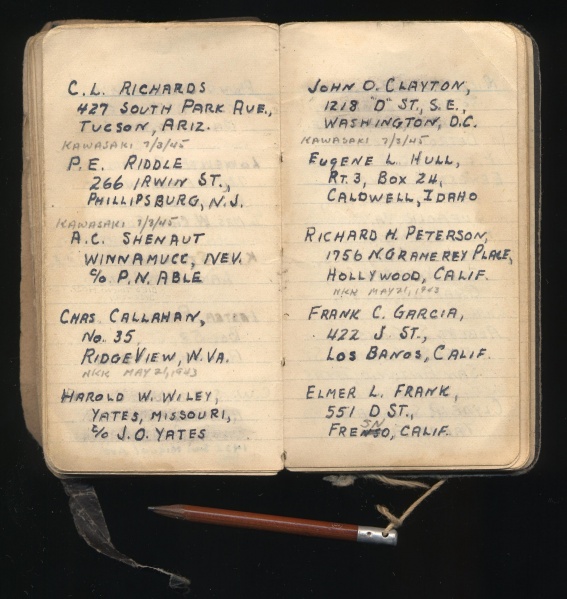 C.L. RICHARDS
427 SOUTH PARK AVE.,
TUCSON, ARIZ.
KAWASAKI 7/3/45
P.E. RIDDLE
266 IRWIN ST.,
PHILLIPSBURG, N.J.
KAWASAKI 7/3/45
A.C. SHENAUT
WINNAMUCC, NEV.
c/o P.N. ABLE
CHAS. CALLAHAN,
No. 35,
RIDGEVIEW, W.VA.
NKK MAY 21, 1943
HAROLD W. WILEY,
YATES, MISSOURI,
c/o J.O. YATES
JOHN O. CLAYTON,
1218 "D" ST., S.E.,
WASHINGTON, D.C.
KAWASAKI 7/3/45
EUGENE L. HULL,
RT. 3, BOX 24,
CALDWELL, IDAHO
RICHARD H. PETERSON,
1756 N. GRAMEREY PLACE,
HOLLYWOOD, CALIF.
NKK MAY 21, 1943
FRANK C. GARCIA,
422 J ST.,
LOS BANOS, CALIF.
ELMER L. FRANK,
551 D ST.,
FRESNO, CALIF.